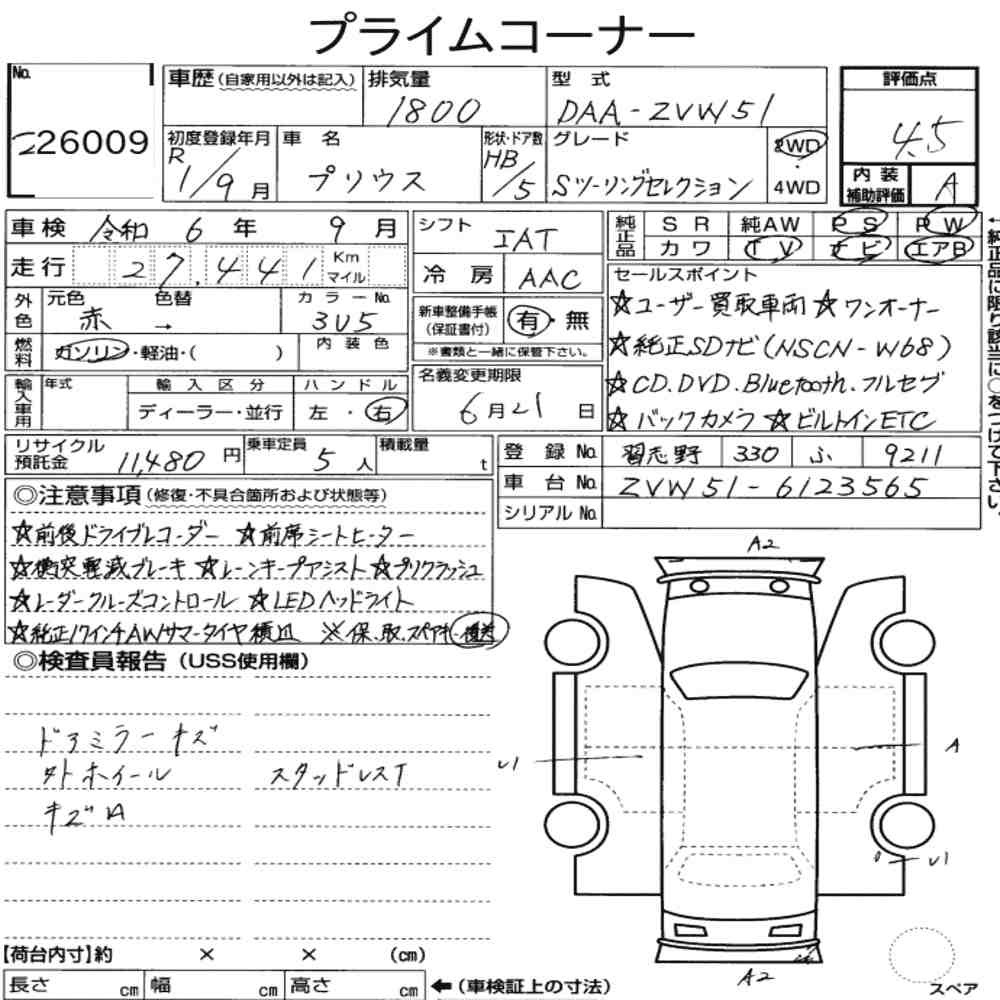 プライムコーナー
No. 26009
車歴（自家用以外は記入） 排気量 1800 型式 DAA-ZVW51 評価点 4.5
初度登録年月 R 1/9月 車名 プリウス 形状・ドア数 HB/5 グレード Sツーリングセレクション 2WD・4WD
内装補助評価 A
車検 令和 6年 9月 シフト IAT 純正品 SR 純AW PS PW
カワ TV ナビ エアB
走行 27,441 Km マイル 冷房 AAC
セールスポイント
外色 元色 赤 色替 → カラーNo. 3U5 新車整備手帳（保証書付） 有・無
☆ユーザー買取車両 ☆ワンオーナー
燃料 ガソリン・軽油・（ ） 内装色 ※書類と一緒に保管下さい。
☆純正SDナビ(NSCN-W68)
輸入車用 年式 輸入区分 ハンドル 名義変更期限
☆CD.DVD.Bluetooth.フルセグ
ディーラー・並行 左・右 6月21日
☆バックカメラ ☆ビルトインETC
←純正品に限り該当に○をつけて下さい。
リサイクル預託金 11,480円 乗車定員 5人 積載量 t 登録No. 習志野 330 ふ 9211
車台No. ZVW51-6123565
シリアルNo.
◎注意事項（修復・不具合箇所および状態等）
☆前後ドライブレコーダー ☆前席シートヒーター
☆衝突軽減ブレーキ ☆レーンキープアシスト ☆プリクラッシュ
☆レーダークルーズコントロール ☆LEDヘッドライト
☆純正17インチAWサマータイヤ積込 ※保.取.スペアキー後送
◎検査員報告（USS使用欄）
ドアミラーキズ
外ホイール スタッドレスT
キズA
A2
U1
A
U1
A2
スペア
【荷台内寸】約 × × （cm）
長さ cm 幅 cm 高さ cm ←（車検証上の寸法）